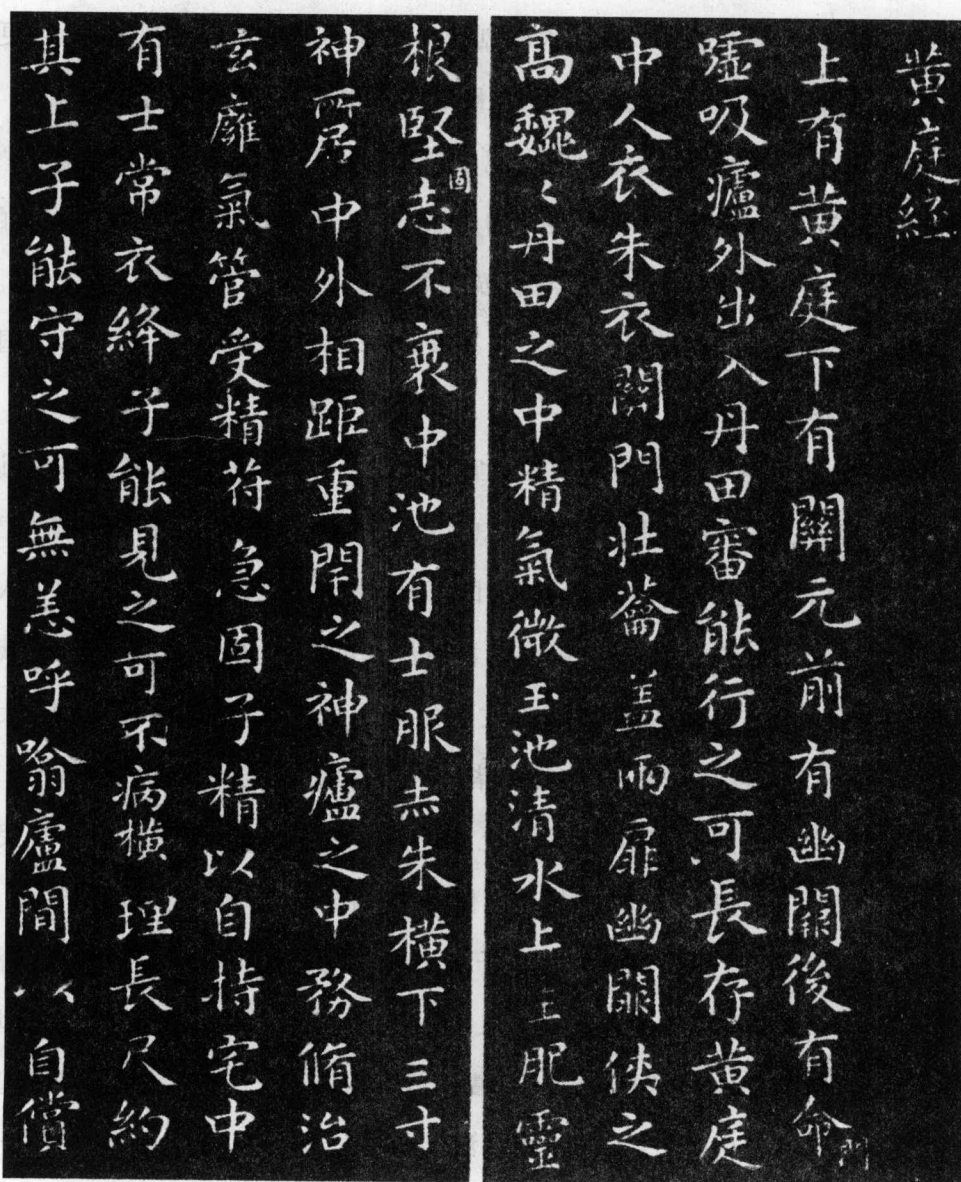 黃庭経
上有黃庭下有關元前有幽關後有命門
嘘吸廬外出入丹田審能行之可長存黃庭
中人衣朱衣關門壯籥盖兩扉幽關俠之
高魏〻丹田之中精氣微玉池清水上生肥靈
根堅固志不衰中池有士服赤朱橫下三寸
神所居中外相距重閇之神廬之中務脩治
玄㢌氣管受精符急固子精以自持宅中
有士常衣絳子能見之可不病橫理長尺約
其上子能守之可無恙呼噏廬間以自償